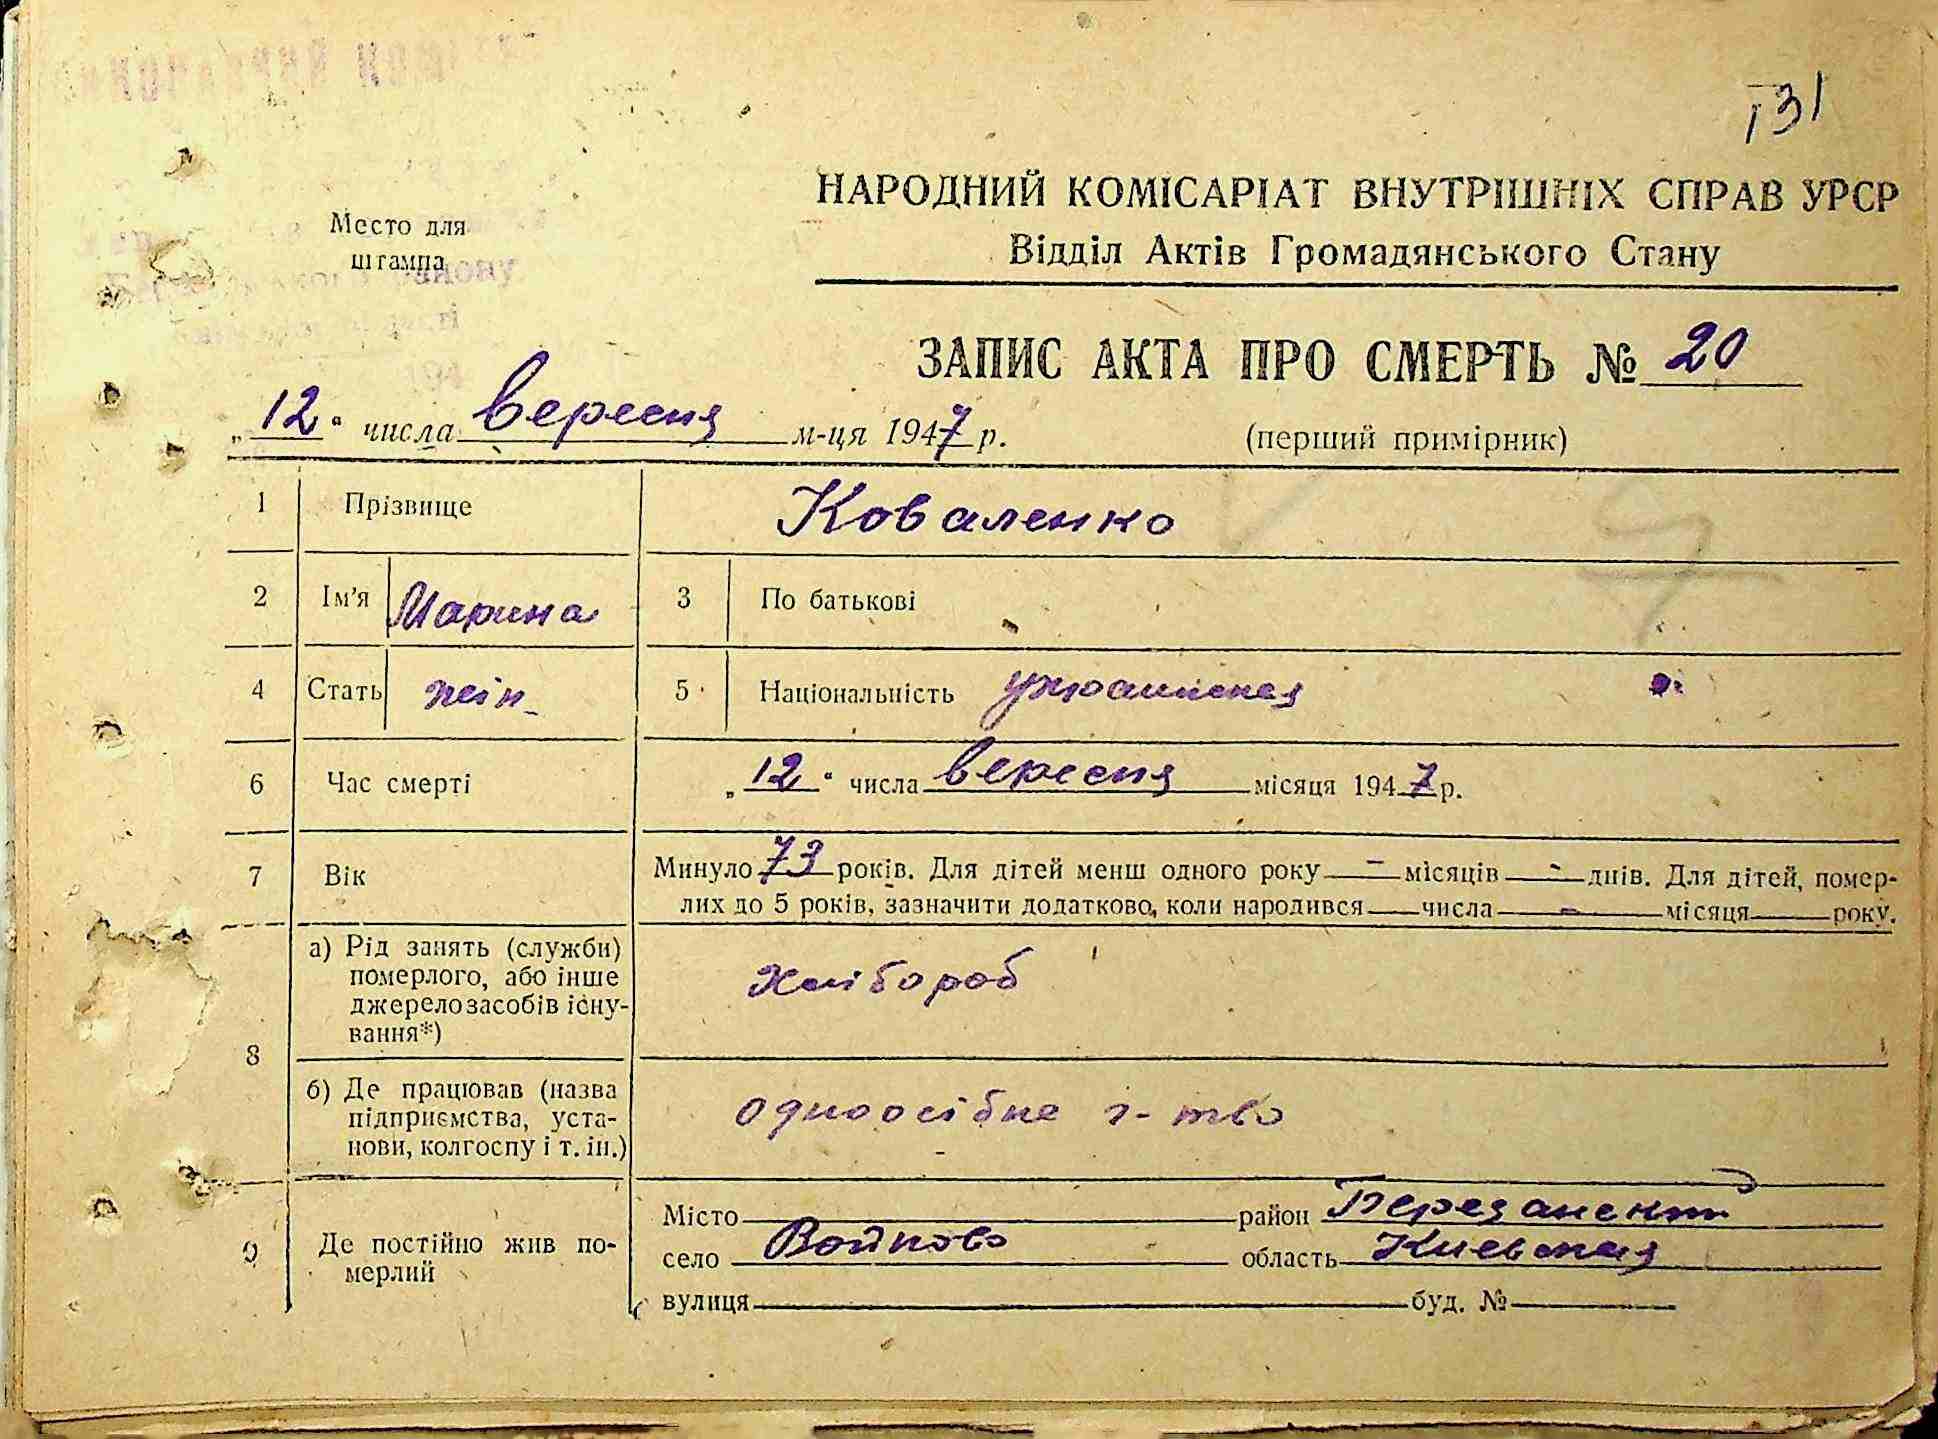 131
НАРОДНИЙ КОМІСАРІАТ ВНУТРІШНІХ СПРАВ УРСР
Відділ Актів Громадянського Стану
Место для
штампа
району
ЗАПИС АКТА ПРО СМЕРТЬ № 20
„12“ числа вересня м-ця 1947 р.
(перший примірник)
1 Прізвище Коваленко
2 Ім'я Марина 3 По батькові
4 Стать жін. 5 Національність
6 Час смерті „12“ числа вересня місяця 1947 р.
7 Вік Минуло 73 років. Для дітей менш одного року — місяців — днів. Для дітей, помер-
лих до 5 років, зазначити додатково, коли народився — числа — місяця — року.
8 а) Рід занять (служби) померлого, або інше джерело засобів існу-вання*) хлібороб
б) Де працював (назва підприємства, уста-нови, колгоспу і т. ін.) одноосібне г-тво
9 Де постійно жив по-мерлий
Місто район
село Войково область Киевская
вулиця буд. №